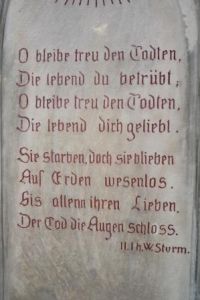 O bleibe treu den Todten,
Die lebend du betrübt;
O bleibe treu den Todten,
Die lebend dich geliebt.
Sie starben, doch sie blieben
Auf Erden wesenlos.
Bis allen ihren Lieben,
Der Tod die Augen schloss.
W. Sturm.